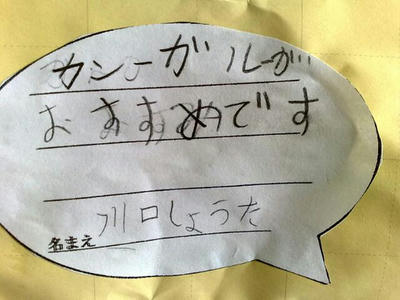 カンガルーが
おすすめです
川口しょうた
名まえ